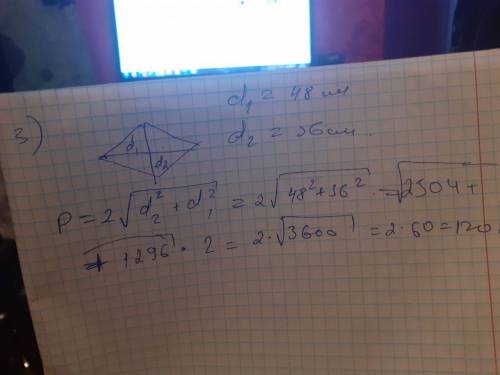 3)
d₁ = 48 см
d₁
d₂
d₂ = 36 см.
P = 2√(d₂² + d₁²) = 2√(48² + 36²) = √(2304 +
+ 1296) · 2 = 2 · √3600 = 2 · 60 = 120